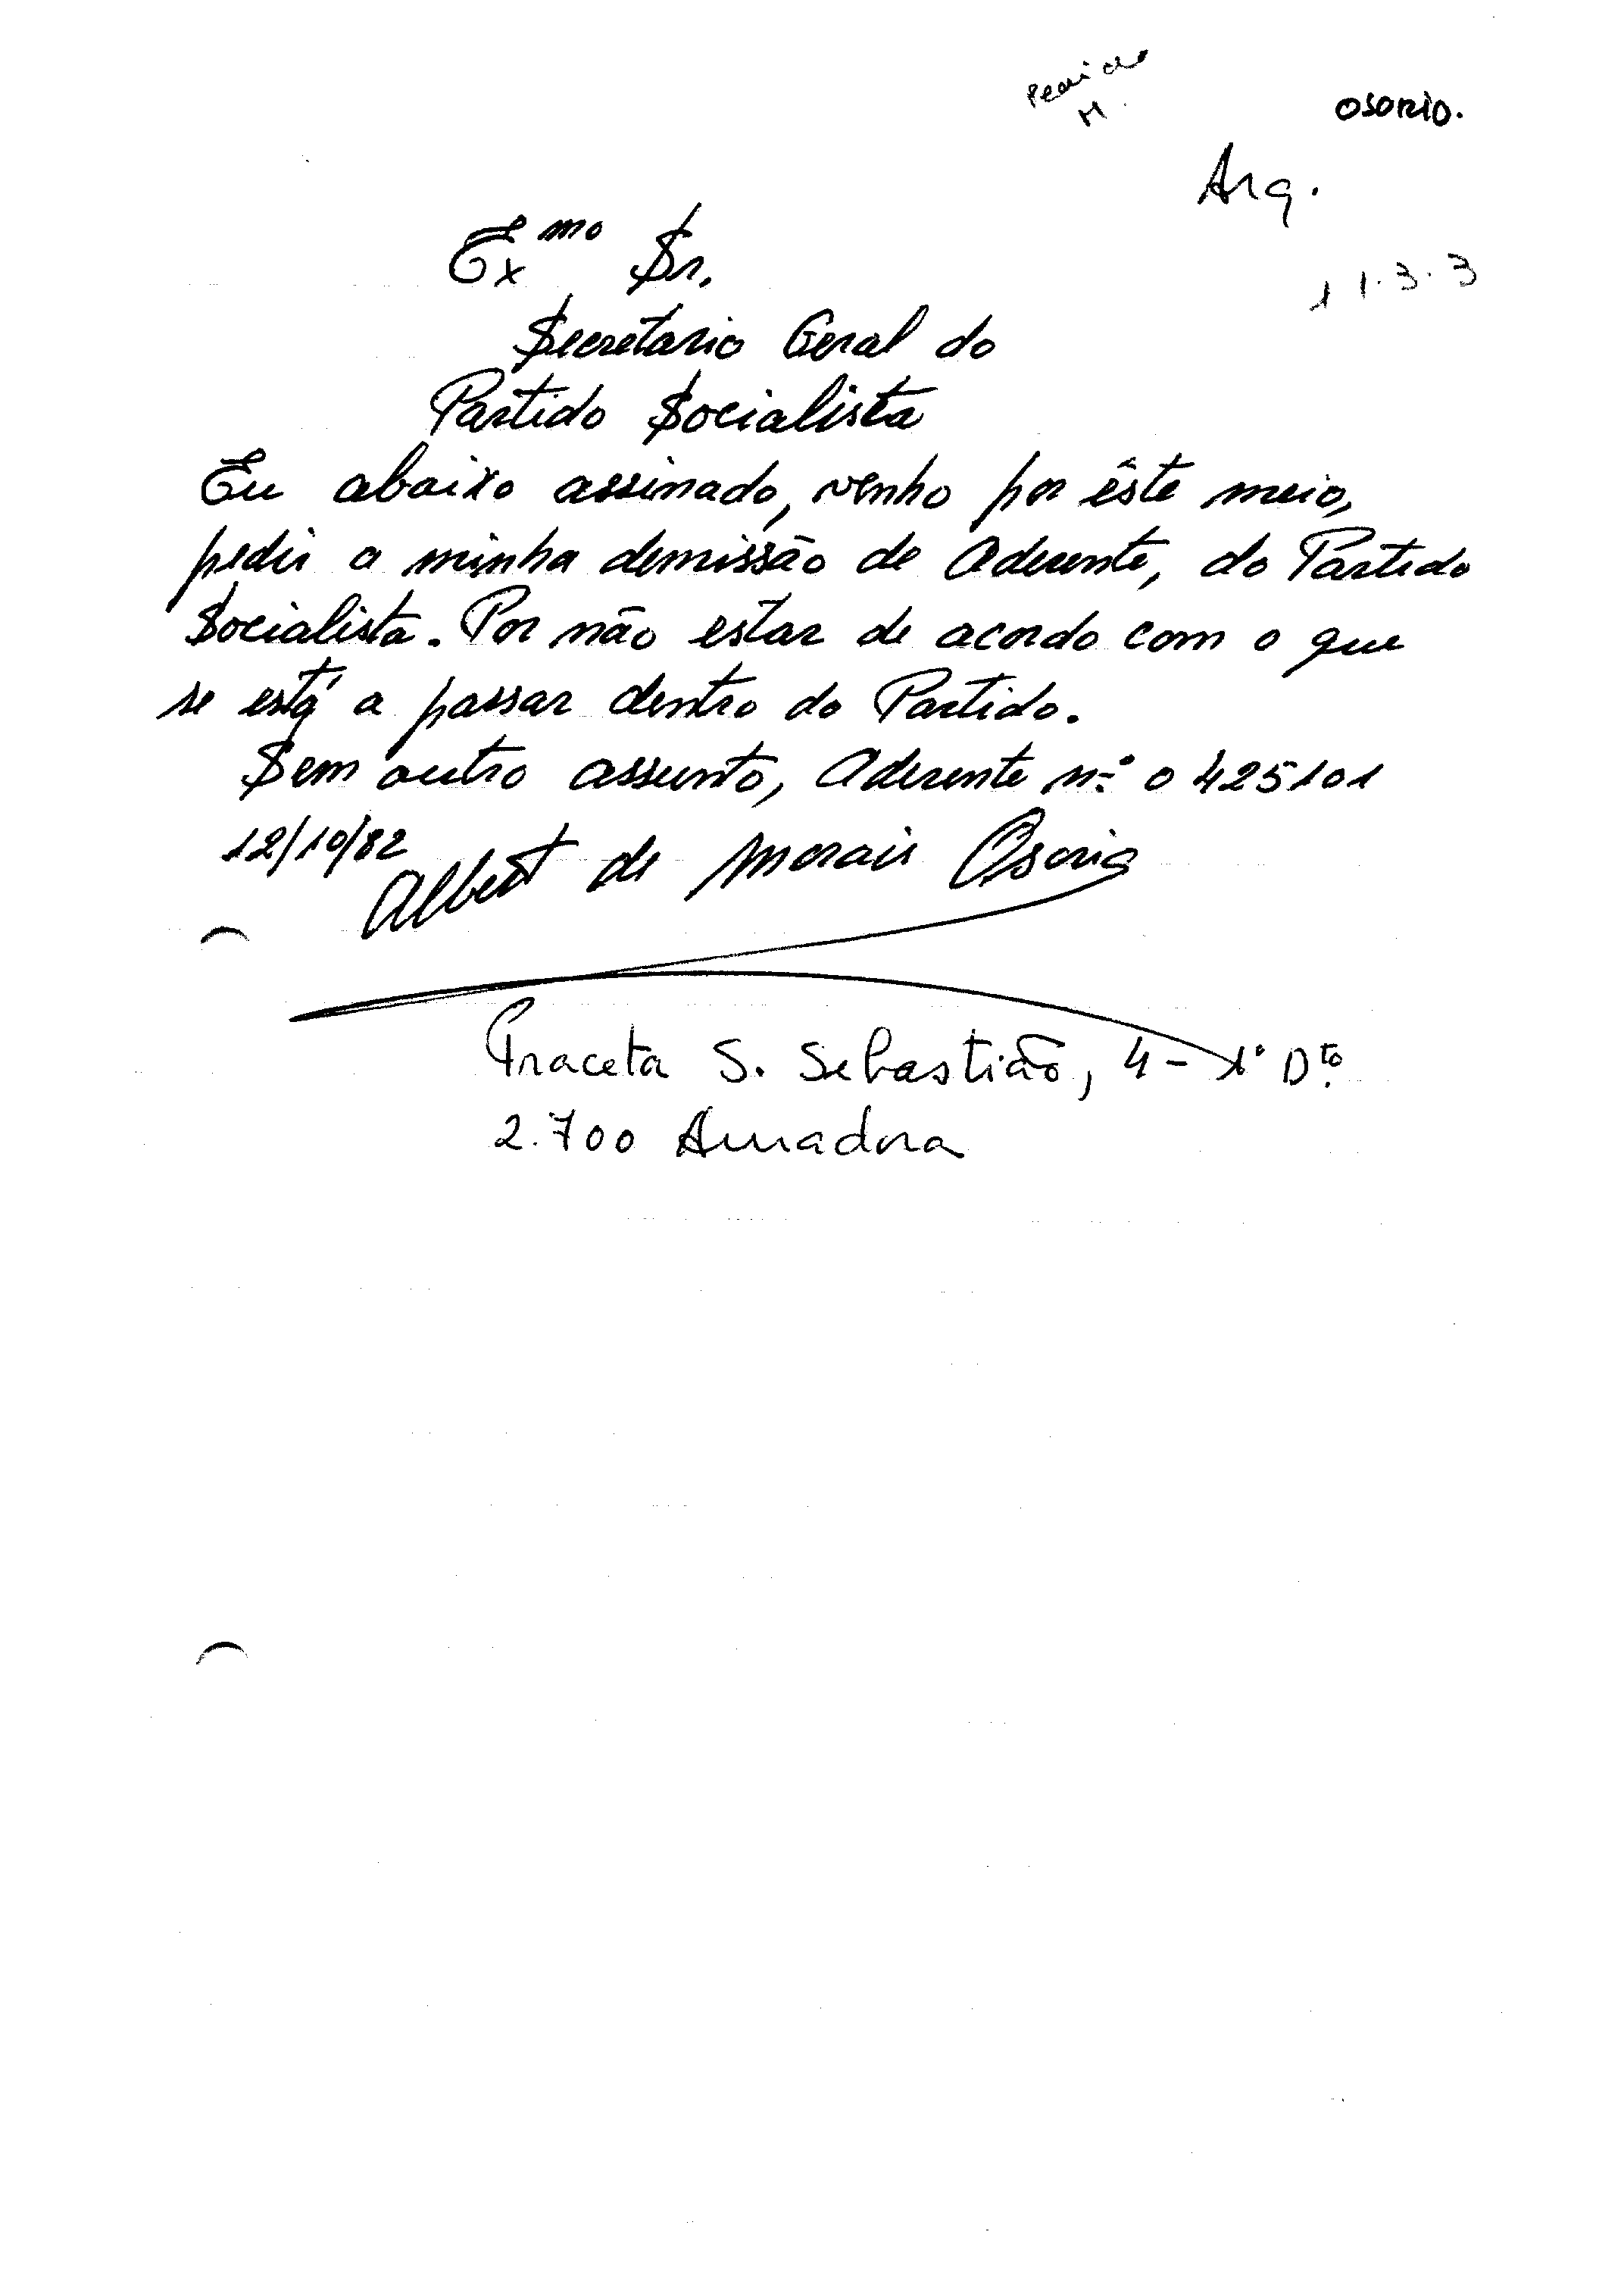 OSORIO.
Arq.
11.3.3
Exmo Sr.
Secretario Geral do
Partido Socialista
Eu abaixo assinado, venho por êste meio,
pedir a minha demissão de Aderente, do Partido
Socialista. Por não estar de acordo com o que
se está a passar dentro do Partido.
Sem outro assunto, Aderente n.º 0425101
12/10/82
Albert de Morais Osorio
Praceta S. Sebastião, 4 - 1º Dto.
2.700 Amadora